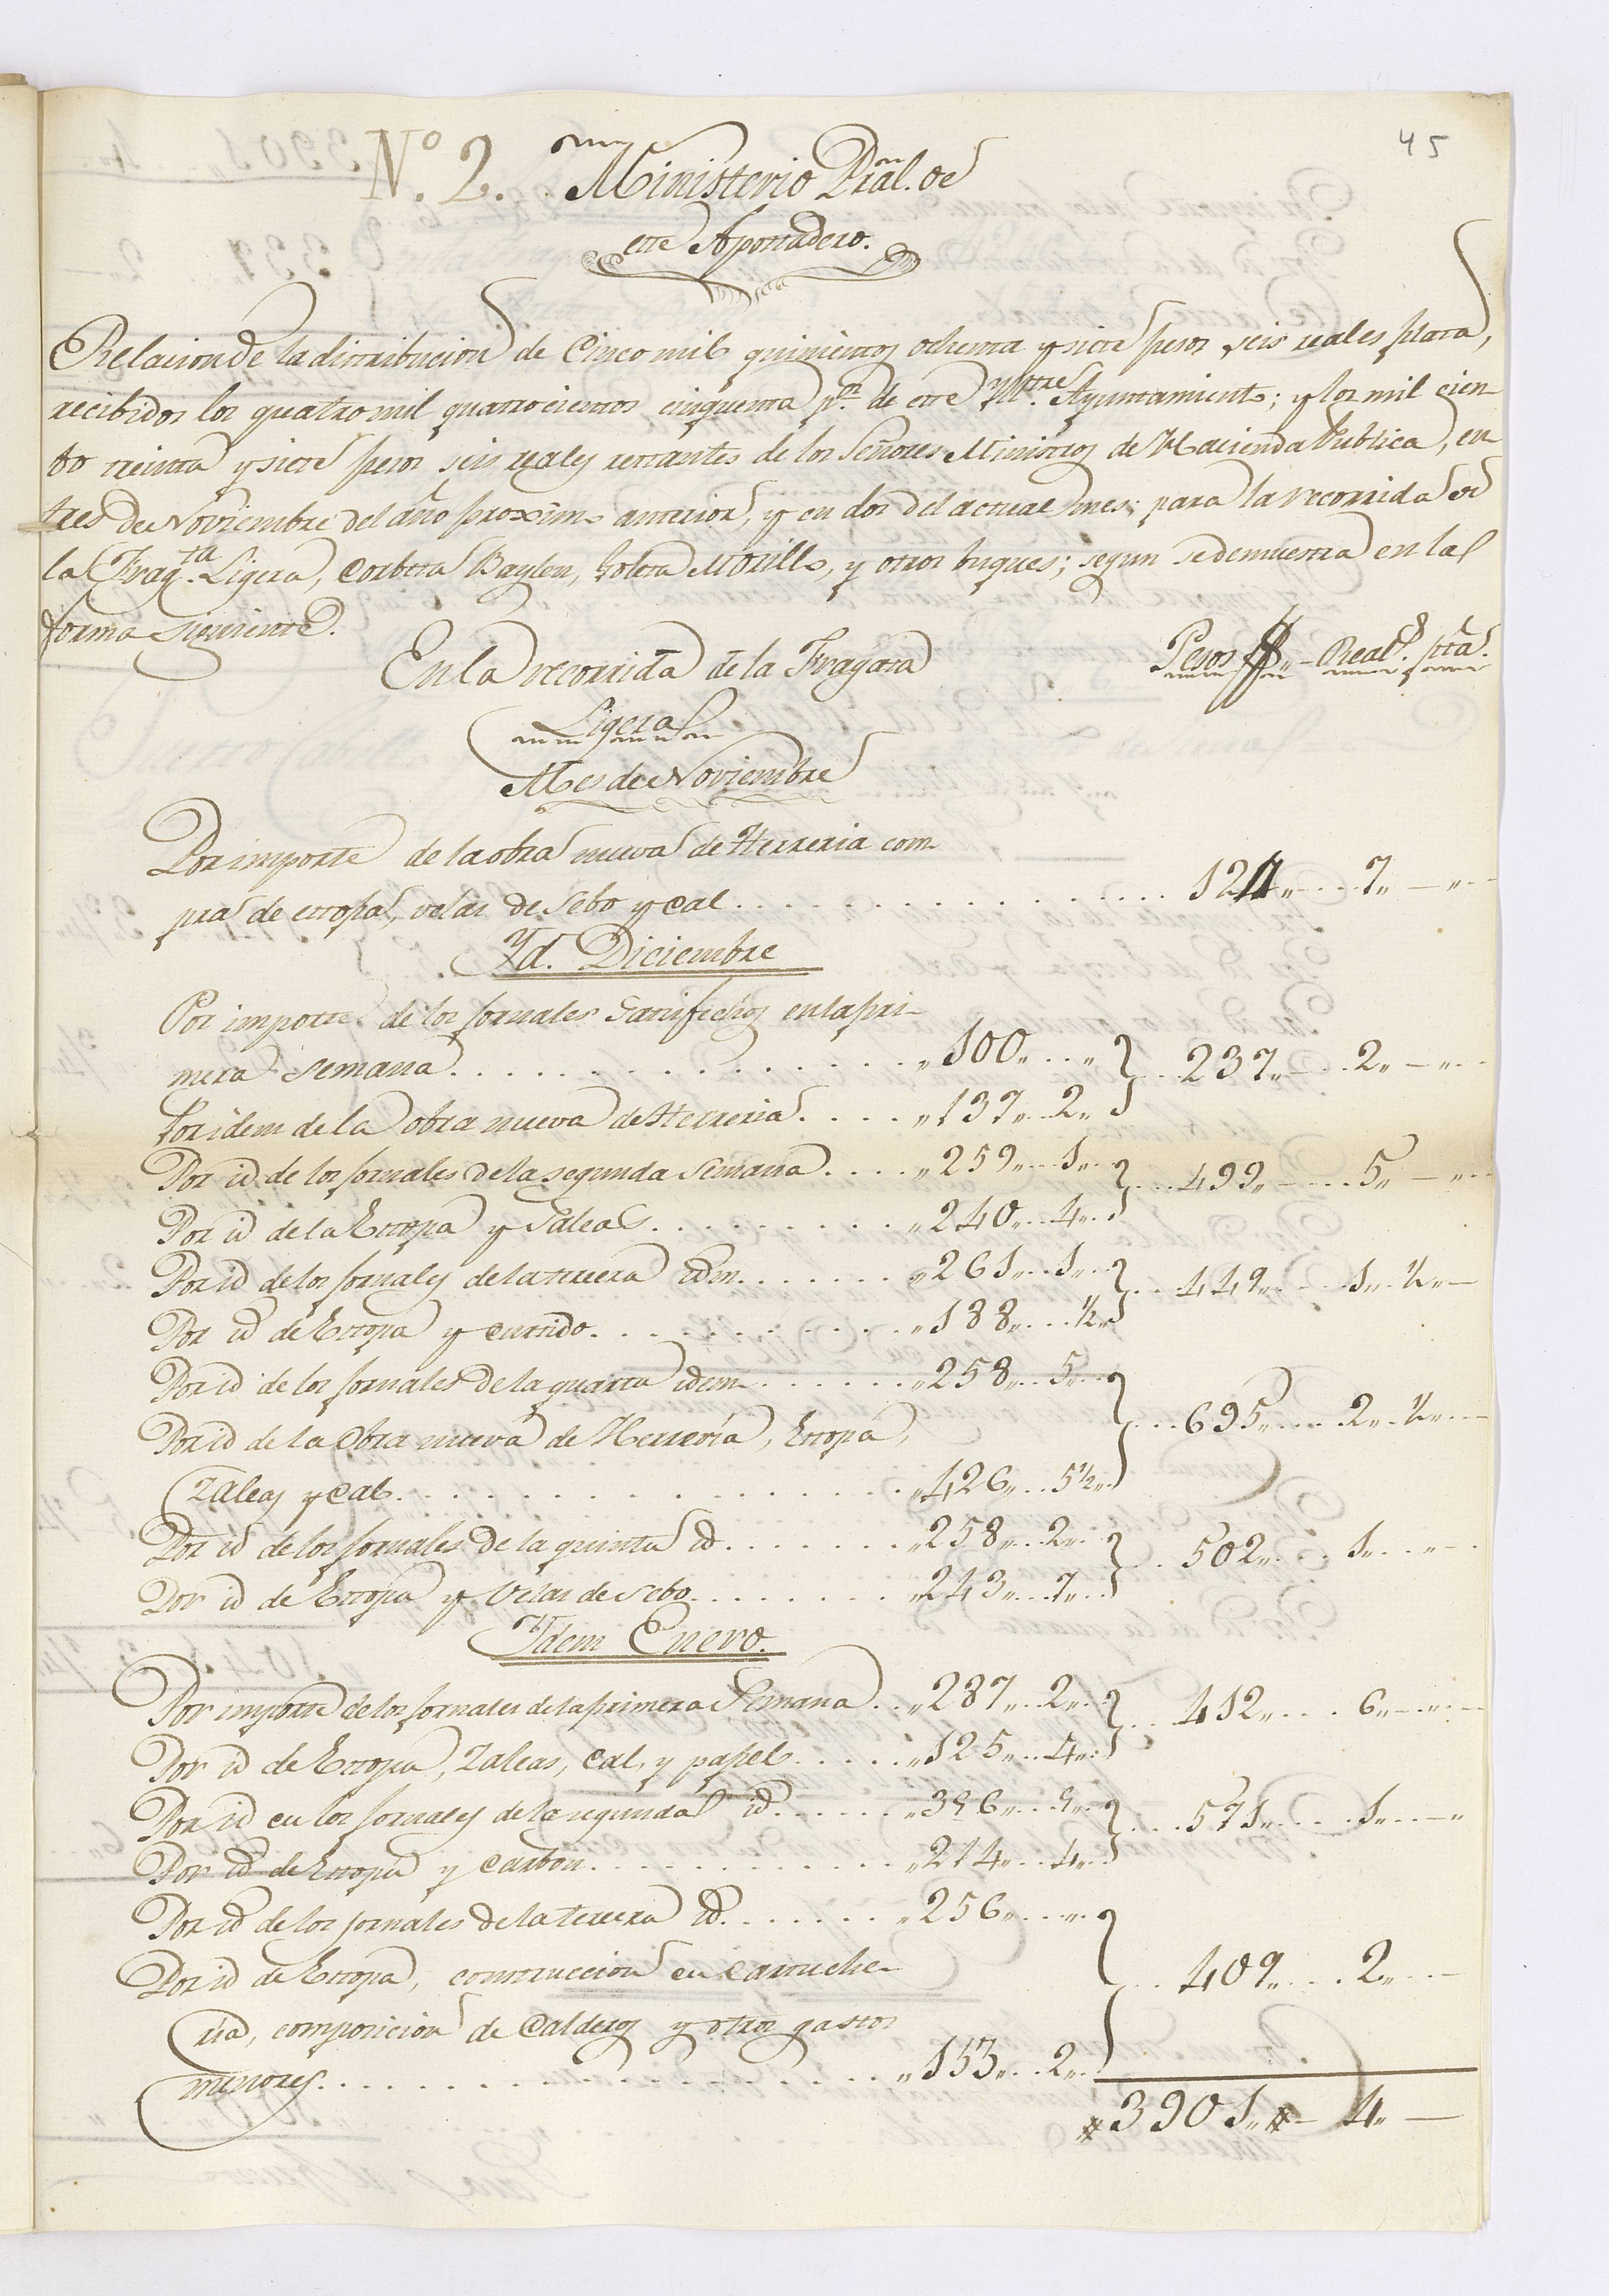 45
Nº. 2. Ministerio Pral. de
este Apostadero.
Relacion de la distribucion de Cinco mil quinientos ochenta y siete pesos seis reales plata,
recibidos los quatro mil quatrocientos cinquenta ps. de este Yltre. Ayuntamiento; y los mil cien-
to treinta y siete pesos seis reales restantes de los Señores Ministros de Hacienda Publica, en
tres de Noviembre del año proximo anterior, y en dos del actual mes; para la recorrida de
la Fragta. Ligera, Corbeta Baylen, Goleta Morillo, y otros buques; segun se demuestra en la
forma siguiente.
En la recorrida de la Fragata Pesos ff. Reals. pta.
Ligera
Mes de Noviembre
Por importe de la obra nueva de Herreria com-
pra de estopa, velas de Sebo y Cal 124 7
Yd. Diciembre
Por importe de los jornales Satisfechos en la pri-
mera semana 100 237 2
Por idem de la obra nueva de Herreria 137 2
Por id de los jornales de la segunda Semana 259 1 499 5
Por id de la Estopa y Zaleas 240 4
Por id de los jornales de la tercera idm 261 1 449 1 ½
Por id de Estopa y curtido 188 ½
Por id de los jornales de la quarta idem 258 5
Por id de la Obra nueva de Herrería, Estopa, 695 2 ½
Zaleas y Cal 426 5½
Por id de los jornales de la quinta id 258 2 502 1
Por id de Estopa y Velas de sebo 243 7
Ydem Enero.
Por importe de los jornales de la primera Semana 287 2 412 6
Por id de Estopa, Zaleas, Cal, y papel 125 4
Por id en los jornales de la segunda id 571 1
Por id de Estopa y Carbon 4
Por id de los jornales de la tercera id 256
Por id de Estopa, construccion en Cartuche- 409 2
ria, composicion de Calderos y otros gastos
menores 153 2
3901 4